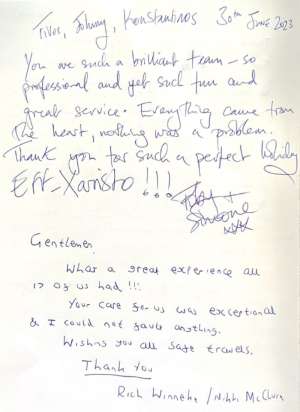 Johnny, Konstantinos 30th June 2023
You are such a brilliant team - so
professional and yet such fun and
great service. Everything came from
the heart, nothing was a problem.
Thank you for such a perfect holiday
Eff-Xaristo !!!
Simone
xxx
Gentlemen,
What a great experience all
of us had !!!
Your care for us was exceptional
& I could not fault anything.
Wishing you all safe travels.
Thank You
Rich / Nikki